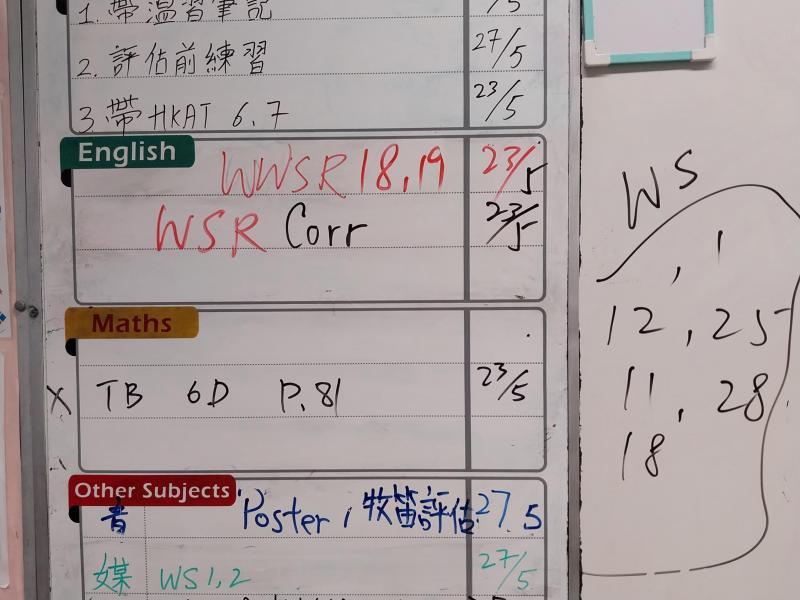 1. 帶溫習筆記 /5
2. 評估前練習 27/5
3. 帶HKAT 6.7 23/5
English
WWSR 18,19 23/5
WSR Corr 23/5
Maths
X TB 6D P.81 23/5
Other Subjects
音 Poster, 牧笛評估 27 5
媒 WS1,2 27/5
WS
, 1
12, 25
11, 28
18